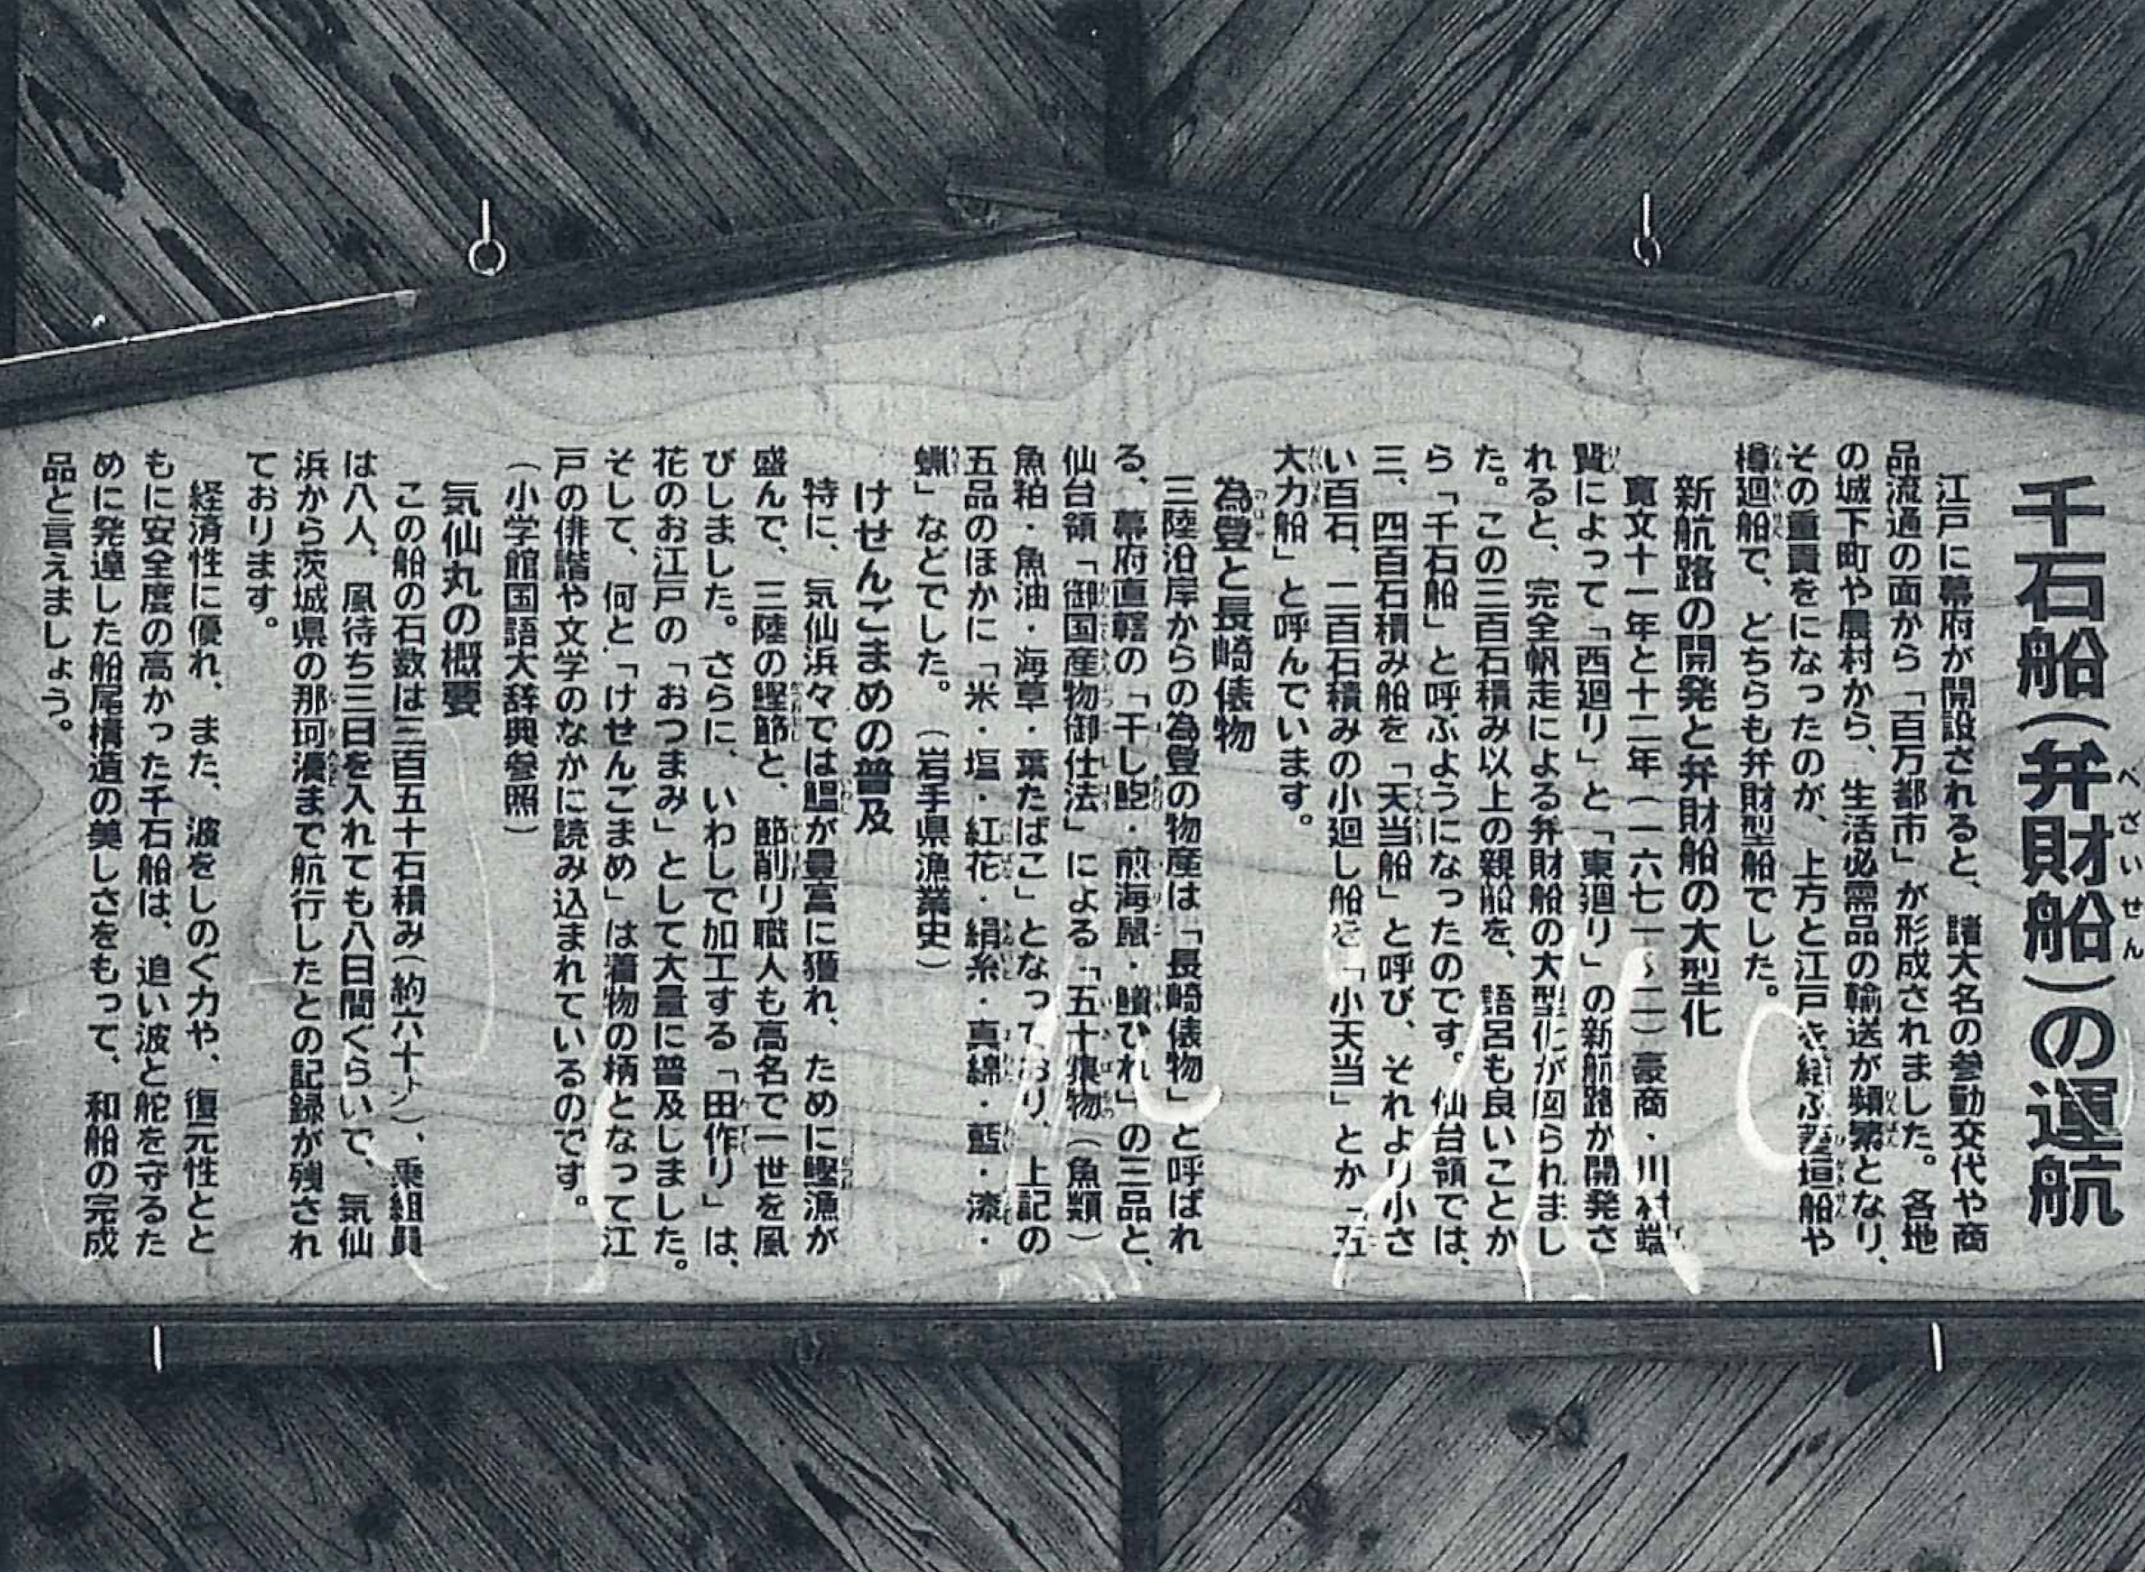 千石船(弁財船)の運航
江戸に幕府が開設されると、諸大名の参勤交代や商
品流通の面から「百万都市」が形成されました。各地
の城下町や農村から、生活必需品の輸送が頻繁となり、
その重責をになったのが、上方と江戸を結ぶ菱垣船や
樽廻船で、どちらも弁財型船でした。
新航路の開発と弁財船の大型化
寛文十一年と十二年(一六七一~二)豪商・川村瑞
賢によって「西廻り」と「東廻り」の新航路が開発さ
れると、完全帆走による弁財船の大型化が図られまし
た。この三百石積み以上の親船を、語呂も良いことか
ら「千石船」と呼ぶようになったのです。仙台領では、
三、四百石積み船を「天当船」と呼び、それより小さ
い百石、二百石積みの小廻し船を「小天当」とか「五
大力船」と呼んでいます。
為登と長崎俵物
三陸沿岸からの為登の物産は「長崎俵物」と呼ばれ
る、幕府直轄の「干し鮑・煎海鼠・鱶ひれ」の三品と、
仙台領「御国産物御仕法」による「五十集物(魚類)
魚粕・魚油・海草・葉たばこ」となっており、上記の
五品のほかに「米・塩・紅花・絹糸・真綿・藍・漆・
蝋」などでした。(岩手県漁業史)
けせんごまめの普及
特に、気仙浜々では鰮が豊富に獲れ、ために鰹漁が
盛んで、三陸の鰹節と、節削り職人も高名で一世を風
びしました。さらに、いわしで加工する「田作り」は、
花のお江戸の「おつまみ」として大量に普及しました。
そして、何と「けせんごまめ」は着物の柄となって江
戸の俳諧や文学のなかに読み込まれているのです。
(小学館国語大辞典参照)
気仙丸の概要
この船の石数は三百五十石積み(約六十㌧)、乗組員
は八人、風待ち三日を入れても八日間ぐらいで、気仙
浜から茨城県の那珂湊まで航行したとの記録が残され
ております。
経済性に優れ、また、波をしのぐ力や、復元性とと
もに安全度の高かった千石船は、追い波と舵を守るた
めに発達した船尾構造の美しさをもって、和船の完成
品と言えましょう。